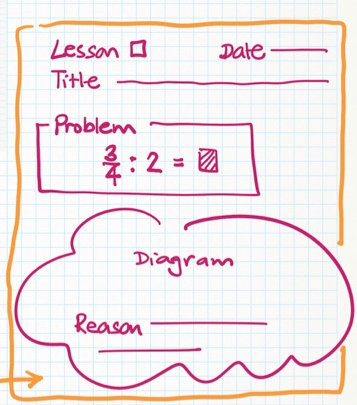 Lesson □ Date
Title
Problem
3/4 : 2 = □
Diagram
Reason